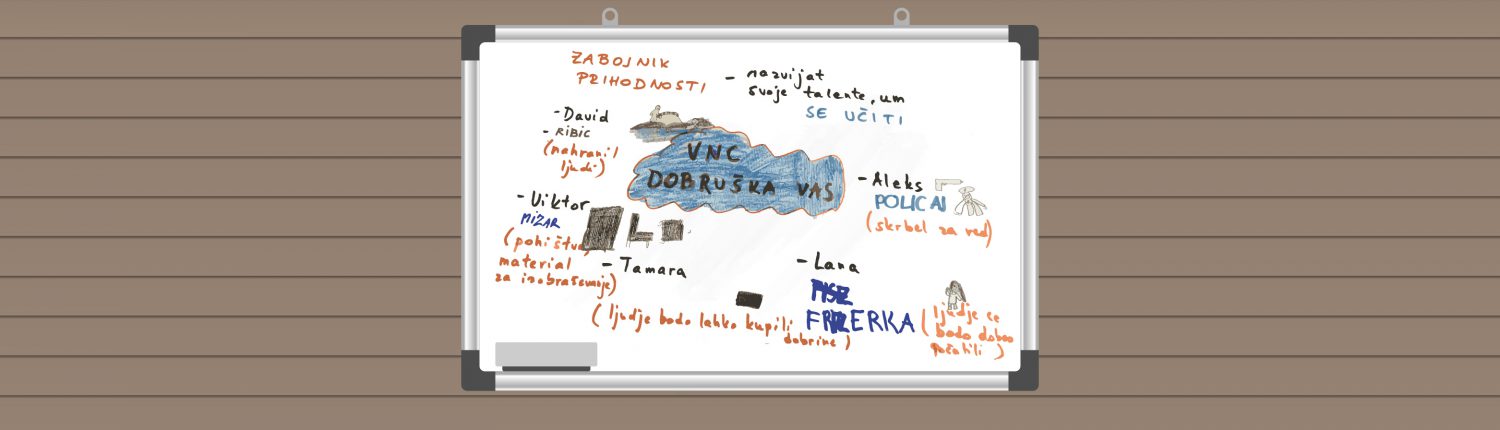 ZABOJNIK
PRIHODNOSTI
- razvijat
svoje talente, um
SE UČITI
- David
- RIBIČ
(nahranil
ljudi)
VNC
DOBRUŠKA VAS
- Aleks
POLICAJ
(skrbel za red)
- Viktor
MIZAR
(pohištvo,
material
za izobraževanje)
- Tamara
(ljudje bodo lahko kupili
dobrine)
- Lana
FRIZERKA
(ljudje se
bodo dobro
počutili)